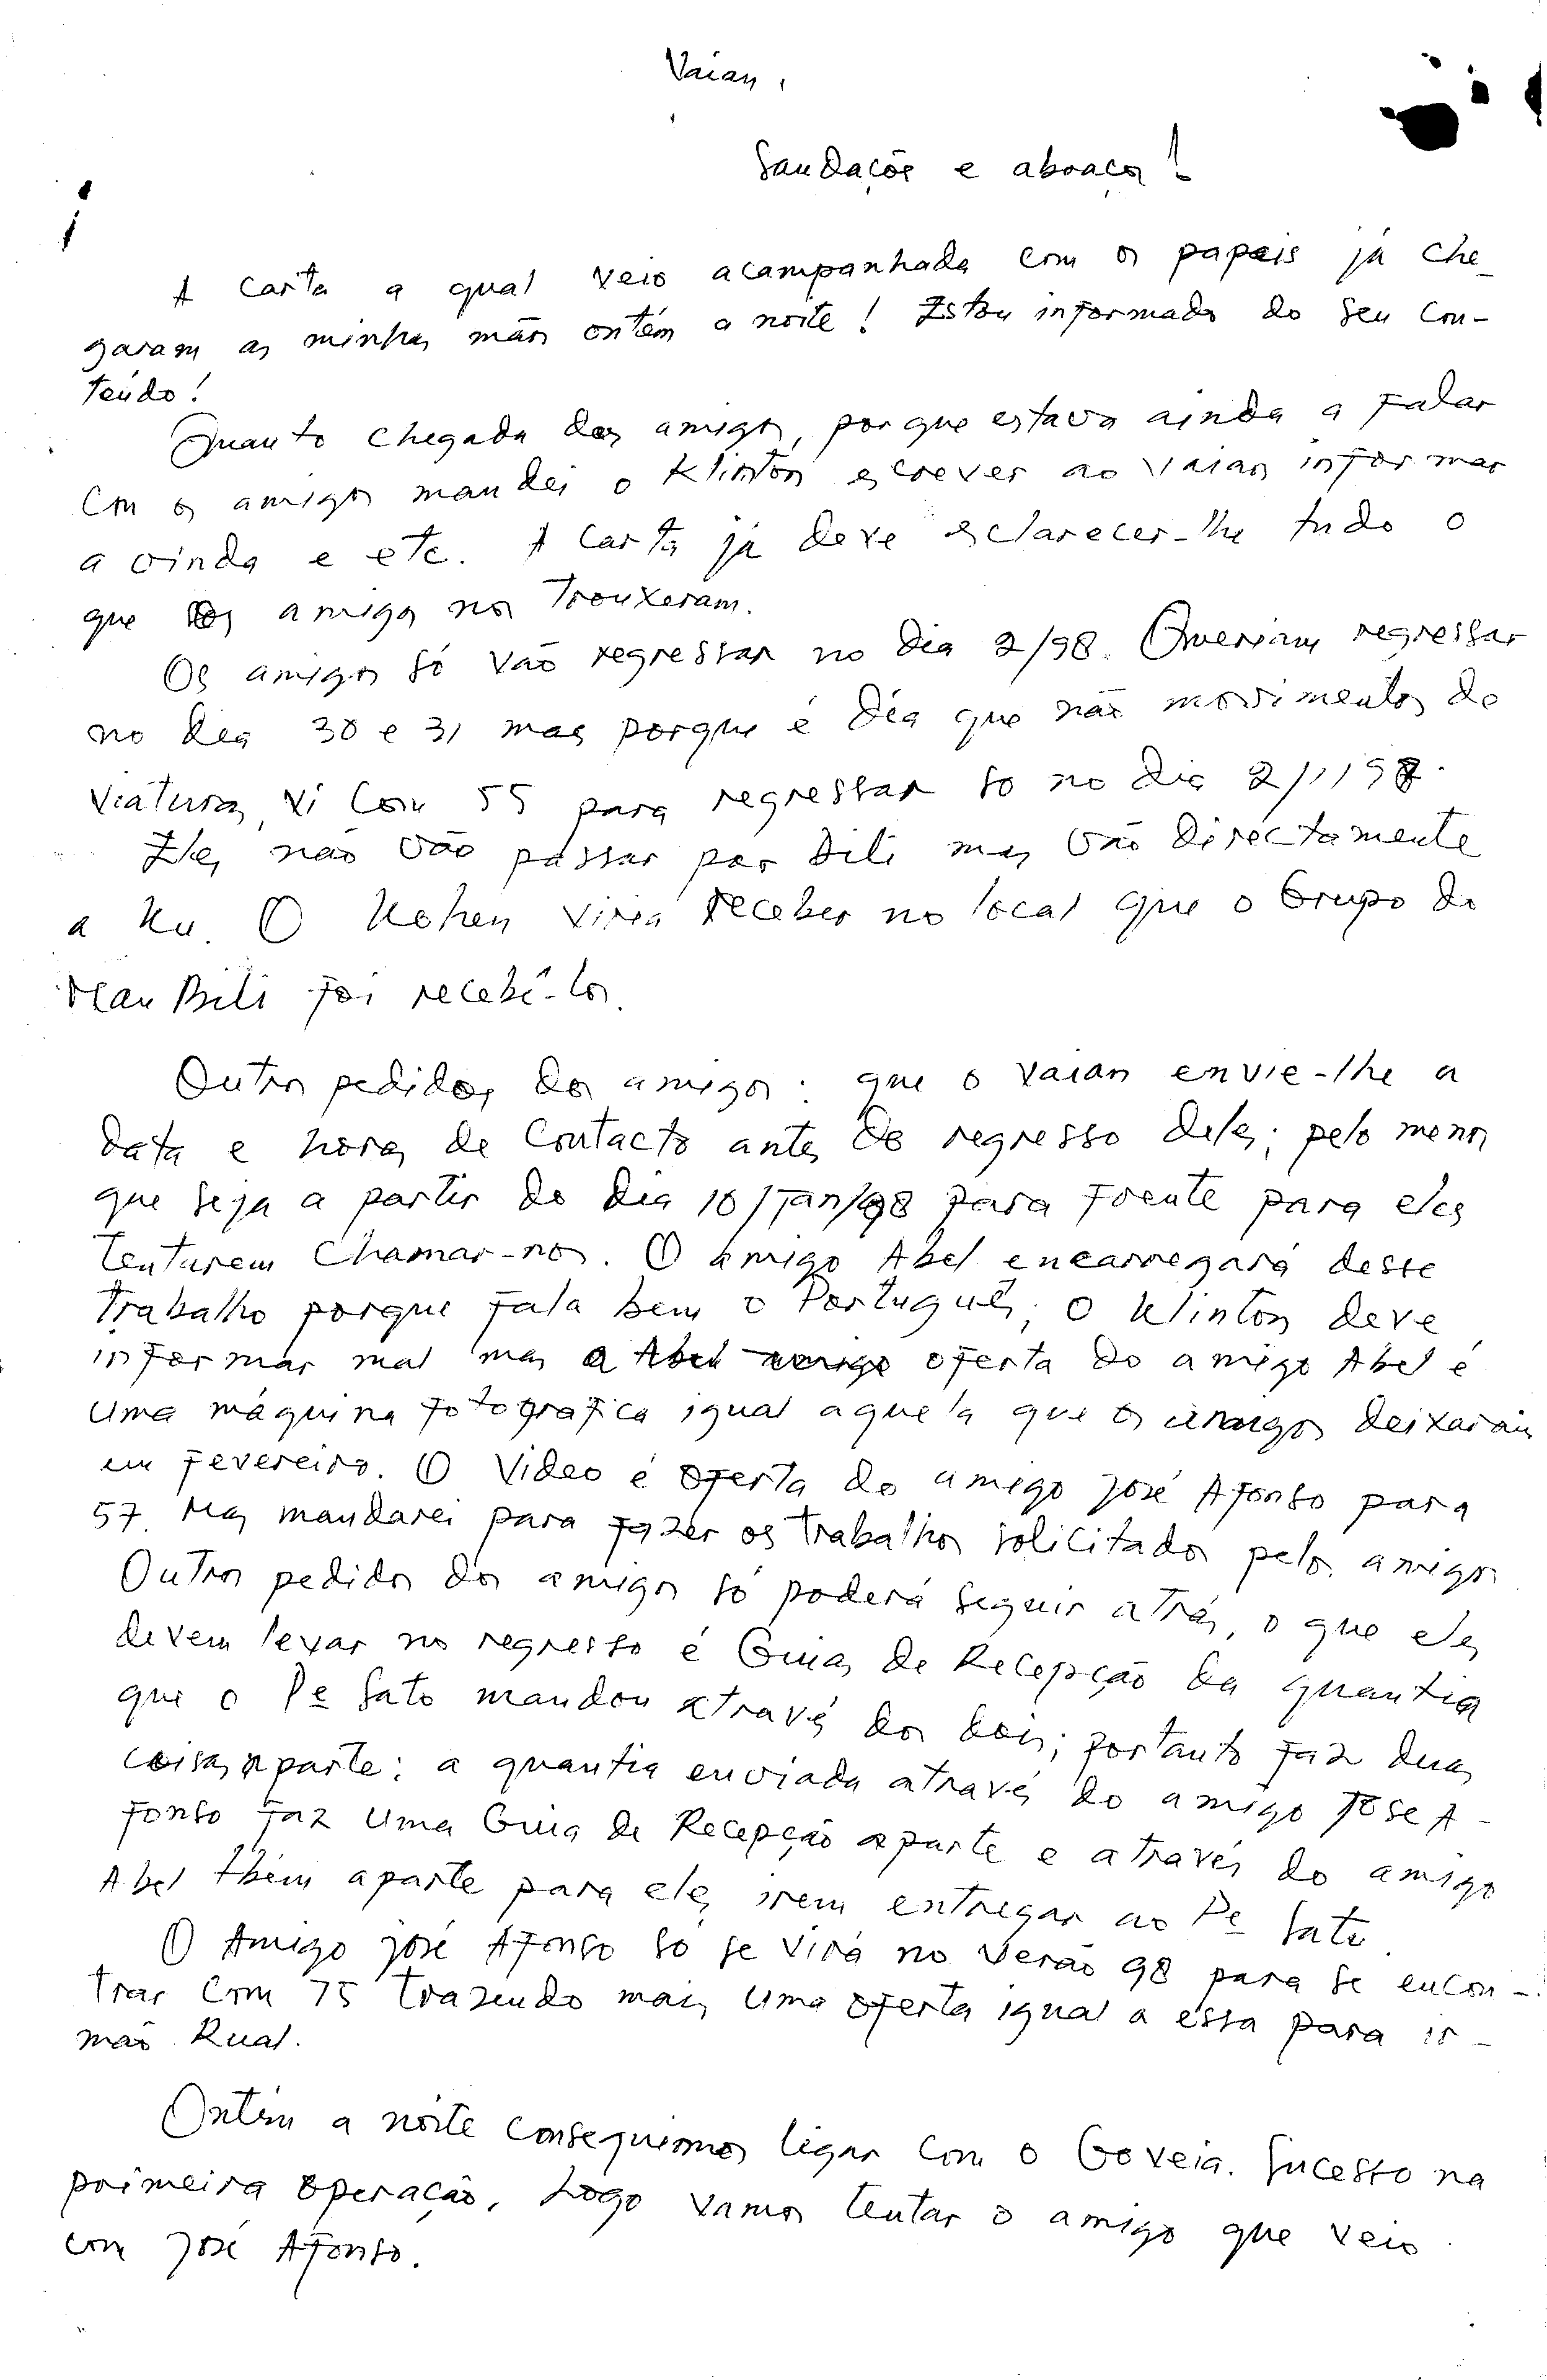 Vaian,
Saudações e abraços!
A carta a qual veio acompanhada com os papeis já che-
garam as minhas mãos ontém a noite! Estou informado do seu con-
teúdo!
Quanto chegada dos amigos, porque estava ainda a falar
com os amigos mandei o Klinton escrever ao Vaian informar
a vinda e etc. A carta já deve esclarecer-lhe tudo o
que os amigos nos trouxeram.
Os amigos só vão regressar no dia 2/98. Queriam regressar
no dia 30 e 31 mas porque é dia que não movimentos de
viaturas, vi com 55 para regressar só no dia 2/1/98.
Eles não vão passar por Dili mas vão directamente
a Ku. O Kohen virá receber no local que o Grupo de
Mau Bili foi recebê-los.
Outros pedidos dos amigos: que o Vaian envie-lhe a
data e horas de contacto antes do regresso deles; pelo menos
que seja a partir do dia 10/Jan/98 para frente para eles
tentarem chamar-nos. O amigo Abel encarregará desse
trabalho porque fala bem o Português; o Klinton deve
informar mal mas a oferta do amigo Abel é
uma máquina fotografica igual aquela que os amigos deixaram
em fevereiro. O Video é oferta do amigo José Afonso para
57. Mas mandarei para fazer os trabalhos solicitados pelos amigos.
Outros pedidos dos amigos só poderá seguir atrás, o que eles
devem levar no regresso é Guias de Recepção da quantia
que o Pe Sato mandou através dos dois; portanto faz duas
coisas aparte: a quantia enviada através do amigo José A-
fonso faz uma Guia de Recepção aparte e através do amigo
Abel tbém aparte para eles irem entregar ao Pe Sato.
O Amigo José Afonso só se virá no Verão 98 para se encon-
trar com 75 trazendo mais uma oferta igual a essa para ir-
mão Rual.
Ontém a noite conseguimos ligar com o Goveia. Sucesso na
primeira operação. Logo vamos tentar o amigo que veio
com José Afonso.